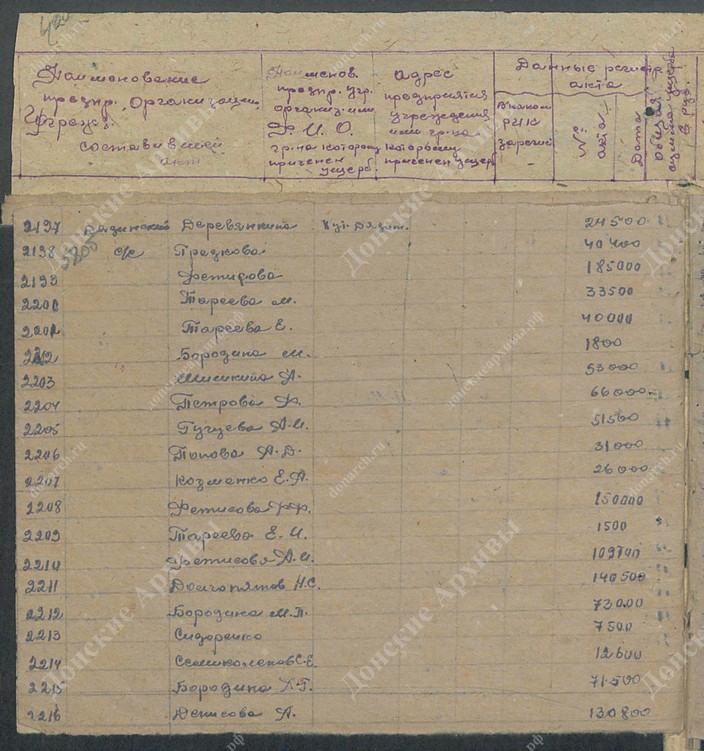 Наименование предпр. Организации, Учрежд. составившей акт
Наименов. предпр. учр. организ. или Ф.И.О. гр-на которому причинен ущерб.
адрес предприятия учреждения или гр-на которому причинен ущерб
Данные регистр акта
В каком РИК зарегис
№: акта
Дата
общая сумма ущерба в руб.
2197 Деревянкина Хут. 24500
2198 с/с Прадкова 40400
2199 Фетисова 185000
2200 Тареева М. 33500
2201 Тареева Е. 40000
2202 Бородина М. 1800
2203 Шишкина А. 53000
2204 Петрова Ф. 66000
2205 А.И. 51500
2206 Попова А.В. 31000
2207 Козменко Е.А. 26000
2208 Фетисова 150000
2209 Тареева Е.И. 1500
2210 Фетисова А.И. 109700
2211 Долгопятов Н.С. 140500
2212 Бородина М.П. 73000
2213 Сидоренко 7500
2214 Семиколенов С.Е. 12600
2215 Бородина Х.Г. 71.500
2216 Денисова А. 130800
Донские Архивы
donarch.ru
донскиеархивы.рф